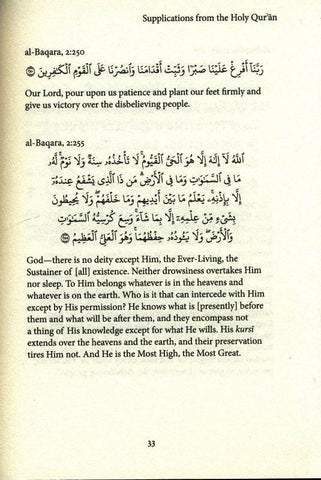 Supplications from the Holy Qur'ān
al-Baqara, 2:250
رَبَّنَآ أَفْرِغْ عَلَيْنَا صَبْرًا وَثَبِّتْ أَقْدَامَنَا وَٱنصُرْنَا عَلَى ٱلْقَوْمِ ٱلْكَٰفِرِينَ
Our Lord, pour upon us patience and plant our feet firmly and
give us victory over the disbelieving people.
al-Baqara, 2:255
ٱللَّهُ لَآ إِلَٰهَ إِلَّا هُوَ ٱلْحَىُّ ٱلْقَيُّومُ ۚ لَا تَأْخُذُهُۥ سِنَةٌ وَلَا نَوْمٌ ۚ لَّهُۥ
مَا فِى ٱلسَّمَٰوَٰتِ وَمَا فِى ٱلْأَرْضِ ۗ مَن ذَا ٱلَّذِى يَشْفَعُ عِندَهُۥٓ
إِلَّا بِإِذْنِهِۦ ۚ يَعْلَمُ مَا بَيْنَ أَيْدِيهِمْ وَمَا خَلْفَهُمْ ۖ وَلَا يُحِيطُونَ
بِشَىْءٍ مِّنْ عِلْمِهِۦٓ إِلَّا بِمَا شَآءَ ۚ وَسِعَ كُرْسِيُّهُ ٱلسَّمَٰوَٰتِ
وَٱلْأَرْضَ ۖ وَلَا يَـُٔودُهُۥ حِفْظُهُمَا ۚ وَهُوَ ٱلْعَلِىُّ ٱلْعَظِيمُ
God—there is no deity except Him, the Ever-Living, the
Sustainer of [all] existence. Neither drowsiness overtakes Him
nor sleep. To Him belongs whatever is in the heavens and
whatever is on the earth. Who is it that can intercede with Him
except by His permission? He knows what is [presently] before
them and what will be after them, and they encompass not
a thing of His knowledge except for what He wills. His kursī
extends over the heavens and the earth, and their preservation
tires Him not. And He is the Most High, the Most Great.
33